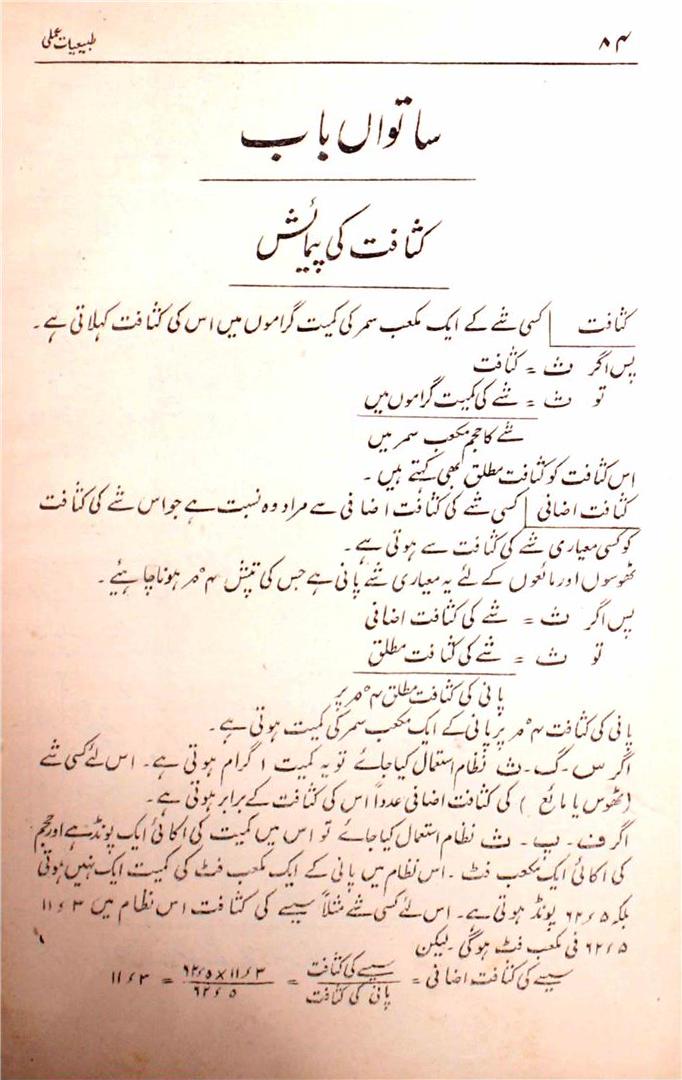 ۸۴
طبیعیات عملی
ساتواں باب
کثافت کی پیمائش
کثافت کسی شے کے ایک مکعب سمر کی کمیت گراموں میں اس کی کثافت کہلاتی ہے۔
پس اگر ث = کثافت
تو ث = شے کی کمیت گراموں میں
شے کا حجم مکعب سمر میں
اس کثافت کو کثافت مطلق بھی کہتے ہیں۔
کثافت اضافی کسی شے کی کثافت اضافی سے مراد وہ نسبت ہے جو اس شے کی کثافت
کو کسی معیاری شے کی کثافت سے ہوتی ہے۔
ٹھوسوں اور مائعوں کے لئے یہ معیاری شے پانی ہے جس کی تپش ۴°مر ہونا چاہئے۔
پس اگر ث = شے کی کثافت اضافی
تو ث = شے کی کثافت مطلق
پانی کی کثافت مطلق ۴°مر پر
پانی کی کثافت ۴°مر پر پانی کے ایک مکعب سمر کی کمیت ہوتی ہے۔
اگر س۔گ۔ث نظام استعمال کیا جائے تو یہ کمیت ۱ گرام ہوتی ہے۔ اس لئے کسی شے
(ٹھوس یا مائع) کی کثافت اضافی عدداً اس کی کثافت کے برابر ہوتی ہے۔
اگر ف۔پ۔ث نظام استعمال کیا جائے تو اس میں کمیت کی اکائی ایک پونڈ ہے اور حجم
کی اکائی ایک مکعب فٹ۔ اس نظام میں پانی کے ایک مکعب فٹ کی کمیت ایک نہیں ہوتی
بلکہ ۶۲ء۵ پونڈ ہوتی ہے۔ اس لئے کسی شے مثلاً سیسے کی کثافت اس نظام میں ۱۱ء۳
۶۲ء۵ فی مکعب فٹ ہوگی۔ لیکن
سیسے کی کثافت اضافی = سیسے کی کثافت / پانی کی کثافت = ۱۱ء۳ × ۶۲ء۵ / ۶۲ء۵ = ۱۱ء۳